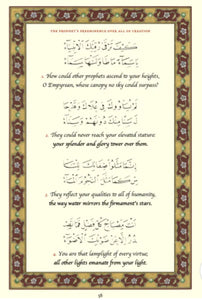 THE PROPHET'S PREEMINENCE OVER ALL OF CREATION
كَيْفَ تَرْقَى رُقِيَّكَ الْأَنْبِيَاءُ
يَا سَمَاءً مَا طَاوَلَتْهَا سَمَاءُ
1. How could other prophets ascend to your heights,
O Empyrean, whose canopy no sky could surpass?
لَمْ يُسَاوُوكَ فِي عُلَاكَ وَقَدْ حَا
لَ سَنًا مِنْكَ دُونَهُمْ وَسَنَاءُ
2. They could never reach your elevated stature:
your splendor and glory tower over them.
إِنَّمَا مَثَّلُوا صِفَاتِكَ لِلنَّا
سِ كَمَا مَثَّلَ النُّجُومَ الْمَاءُ
3. They reflect your qualities to all of humanity,
the way water mirrors the firmament's stars.
أَنْتَ مِصْبَاحُ كُلِّ فَضْلٍ فَمَا تَصْ
دُرُ إِلَّا عَنْ ضَوْئِكَ الْأَضْوَاءُ
4. You are that lamplight of every virtue;
all other lights emanate from your light.
58